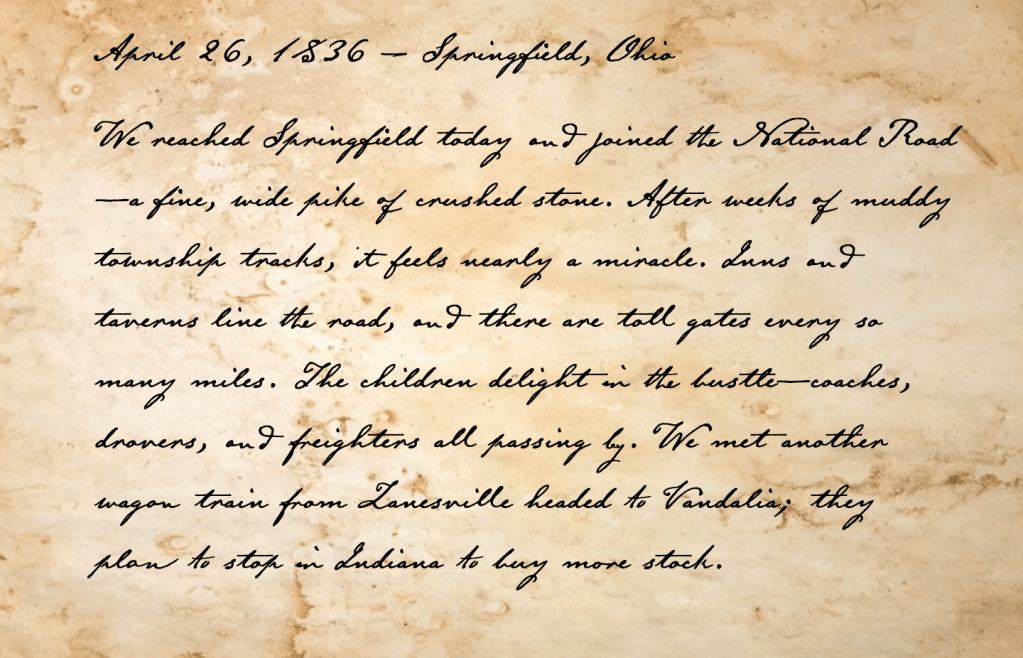 April 26, 1836 — Springfield, Ohio
We reached Springfield today and joined the National Road
—a fine, wide pike of crushed stone. After weeks of muddy
township tracks, it feels nearly a miracle. Inns and
taverns line the road, and there are toll gates every so
many miles. The children delight in the bustle—coaches,
drovers, and freighters all passing by. We met another
wagon train from Zanesville headed to Vandalia; they
plan to stop in Indiana to buy more stock.